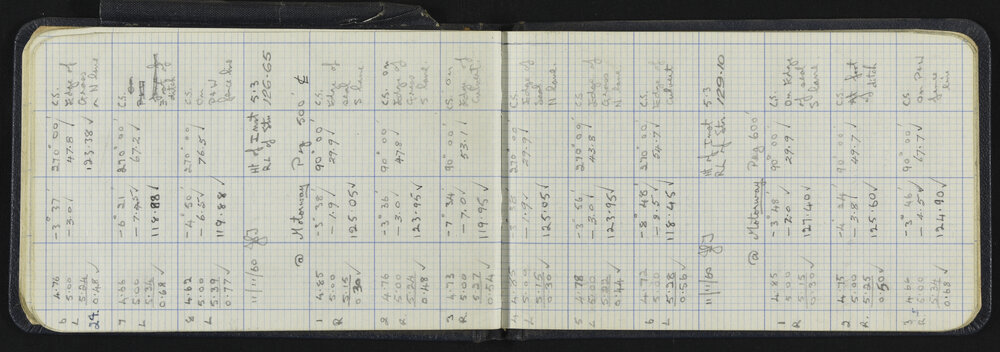 6 4.76 -3° 37' 270° 00' C.S.
L 5.00 -3.0√ 47.8√ Edge of
5.24 Grass
29. 0.48√ 123.38√ N lane
7 4.66 -6° 21 270° 00' C.S.
L 5.00 -7.45√ 67.2√
5.34 118.88√
0.68√ ditch
8 4.62 -4° 50' 270° 00' C.S.
L 5.00 -6.5√ 76.5√ On
5.39 P&W
0.77√ 119.88√ fence line
11/11/60 Ht of Inst 5.3
RL of Stn 126.65
@ Motorway Peg 500 ℄
1 4.85 -3° 38' 90° 00' C.S.
R 5.00 -1.9√ 29.9√ Edge of
5.15 seal
0.30√ 125.05√ S lane
2 4.76 -3° 36' 90° 00' C.S. On
R 5.00 -3.0√ 47.8√ Edge of
5.24 Grass
0.48√ 123.95√ S lane
3 4.73 -7° 34 90° 00' C.S. On
R 5.00 -7.0√ 53.1√ Edge of
5.27 Culvert
0.54√ 119.95√
4 4.85 -3° 38' 270° 00' C.S.
L 5.00 -1.9√ 29.9√ Edge of
5.15 Seal
0.30√ 125.05√ N lane
5 4.78 -3° 56' 270° 00' C.S.
L 5.00 -3.0√ 43.8√ Edge of
5.22 Grass
0.44√ 123.95√ N lane
6 4.72 -8° 48' 270° 00' C.S.
L 5.00 -8.5√ 54.7√ Edge of
5.28 Culvert
0.56√ 118.45√
11/11/60 Ht of Inst 5.3
RL of Stn 129.10
@ Motorway Peg 600'
1 4.85 -3° 48' 90° 00' C.S.
R 5.00 -2.0√ 29.9√ On Edge
5.15 of seal
0.30√ 127.40√ S lane
2 4.75 -4° 24' 90° 00' C.S.
R. 5.00 -3.8√ 49.7√
5.25 of ditch
0.50√ 125.60√
3 4.66 -3° 46' 90° 00' C.S.
R. 5.00 -4.5√ 67.7√ On P&W
5.34 fence
0.68√ 124.90√ line